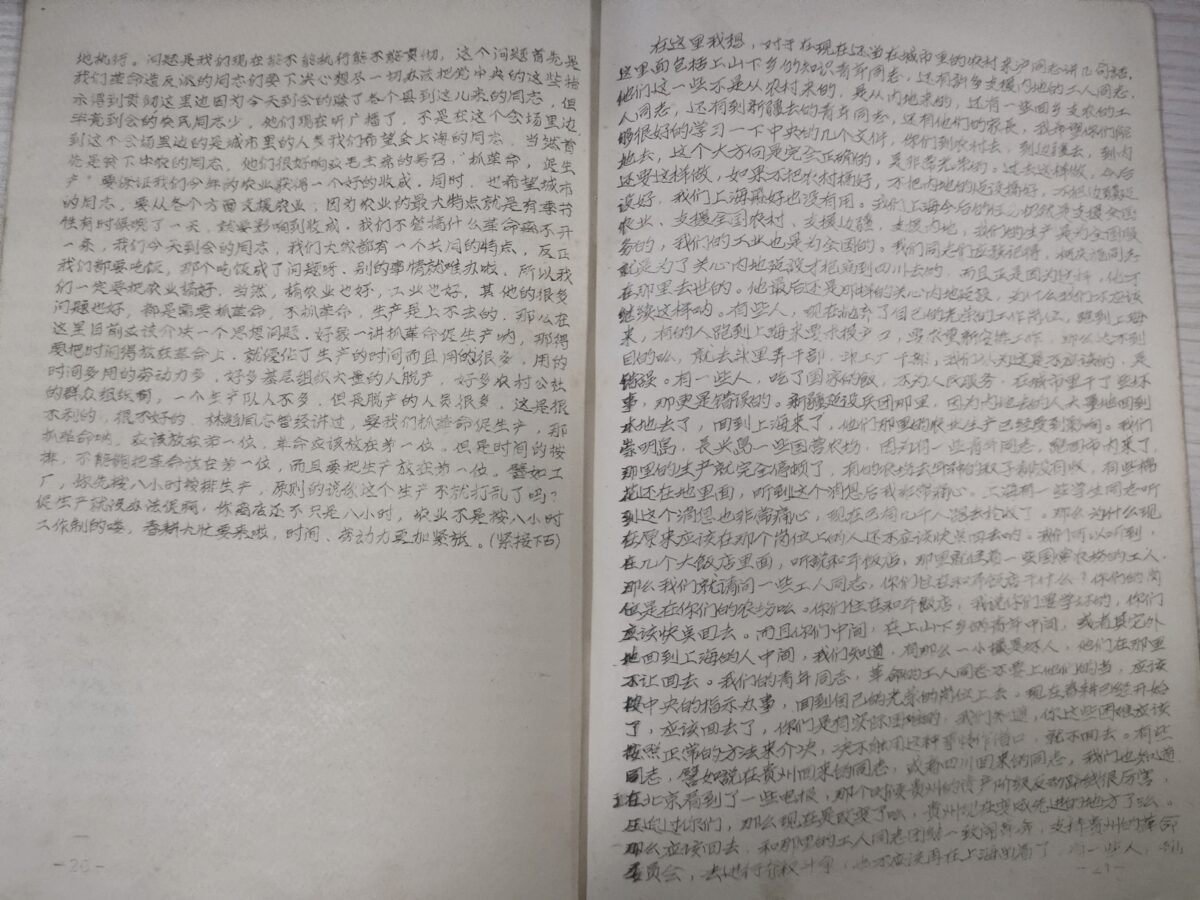 地执行。问题是我们现在能不能执行能不能贯彻，这个问题首先是
我们革命造反派的同志们要下决心想尽一切办法把党中央的这些指
示得到贯彻这里边因为今天到会的除了各个县到这儿来的同志，但
毕竟到会的农民同志少。他们现在听广播了，不是在这个会场里边
到这个会场里边的是城市里的人多我们希望会上海的同志，当然首
先是贫下中农的同志，他们很好响应毛主席的号召，“抓革命，促生
产”要保证我们今年的农业获得一个好的收成。同时，也希望城市
的同志，要从各个方面支援农业；因为农业的最大特点就是有季节
性有时候晚了一天，就要影响到收成。我们不管搞什么革命都不开
一条，我们今天到会的同志，我们大家都有一个共同的特点，反正
我们都要吃饭，那个吃饭成了问题呀，别的事情就难办啦，所以我
们一定要把农业搞好。当然，搞农业也好，工业也好，其他的很多
问题也好，都是需要抓革命，不抓革命，生产是上不去的，那么在
这里目前应该介决一个思想问题，好象一讲抓革命促生产呐，那得
要把时间得放在革命上，就侵佔了生产的时间而且用的很多，用的
时间多用的劳动力多，好多基层组织大量的人脱产，好多农村公社
的群众组织啊，一个生产队人不多，但是脱产的人员很多，这是很
不利的，很不好的，林彪同志曾经讲过，要我们抓革命促生产，那
抓革命呐，应该放在第一位，革命应该放在第一位。但是时间的按
排，不能够把革命放在第一位，而且要把生产放在第一位。譬如工
厂，你先按八小时按排生产，原则的说你这个生产不就打乱了吗？
促生产就没办法促啊，你商店还不只是八小时，农业不是按八小时
工作制的喽，春耕大忙要来啦，时间、劳动力更加紧张。（紧接下页）
-20-
在这里我想，对于在现在还留在城市里的农村来沪同志讲几句话，
这里面包括上山下乡的知识青年同志，还有新乡支援内地的工人同志，
他们这一些不是从农村来的，是从内地来的，还有一些回乡支农的工
人同志，还有到新疆去的青年同志，还有他们的家长，我希望你们能
够很好的学习一下中央的几个文件，你们到农村去，到边疆去，到内
地去，这个大方向是完全正确的，是非常光荣的。过去这样做，今后
还要这样做，如果不把农村搞好，不把内地的建设搞好，不把边疆建
设好，我们上海再好也没有用。我们上海今后的任务仍然是支援全国
农业、支援全国农村、支援边疆，支援内地，我们的生产是为全国服
务的，我们的工业也是为全国的。我们同志们应该记得，柯庆施同志
就是为了关心内地建设才抱病到四川去的，而且正是因为这样，他才
在那里去世的。他最后还是那样的关心内地建设，为什么我们不应该
继续这样呐。有些人，现在抛弃了自己的光荣的工作岗位，跑到上海
来，有的人跑到上海来要求报户口，要求重新安排工作，那么达不到
目的呢，就去斗里弄干部，斗工厂干部，我们认为这是不应该的，是
错误。有一些人，吃了国家的饭，不为人民服务，在城市里干了些坏
事，那更是错误的。新疆建设兵团那里，因为内地去的人大量地回到
本地去了，回到上海来了，他们那里的农业生产已经受到影响。我们
崇明岛，长兴岛一些国营农场，因为有一些青年同志，跑回市内来了
那里的生产就完全停顿了，有的农场去年种的
还在地里面，听到这个消息后我非常痛心。上海有一些学生同志听
到这个消息也非常痛心，现在已有几千人跑去抢收了。那么为什么现
在原来应该在那个岗位上的人还不应该快点回去吶。我们可以听到，
在几个大饭店里面，听说和平饭店，那里就住着一些国营农场的工人，
那么我们就请问一些工人同志，你们住在和平饭店干什么？你们的岗
位是在你们的农场呀。你们住在和平饭店，我说你们要学坏的，你们
应该快点回去。而且你们中间，在上山下乡的青年中间，或者其它外
地回到上海的人中间，我们知道，有那么一小撮是坏人，他们在那里
不让回去。我们的青年同志，革命的工人同志不要上他们的当，应该
按中央的指示办事，回到自己的光荣的岗位上去。现在春耕已经开始
了，应该回去了，你们是有实际困难的，我们知道，你这些困难应该
按照正常的方法来介决，决不能用这种事情作借口，就不回去。有些
同志，譬如说在贵州回来的同志，或者四川回来的同志，我们也知道
在北京看到了一些电报，那个时候贵州的资产阶级反动路线很厉害，
压迫过你们，那么现在是改变了么，贵州现在变成先进的地方了么。
那么应该回去，和那里的工人同志团结一致闹革命，支持贵州的革命
委员会，去进行夺权斗争，也不应该再在上海
-21-